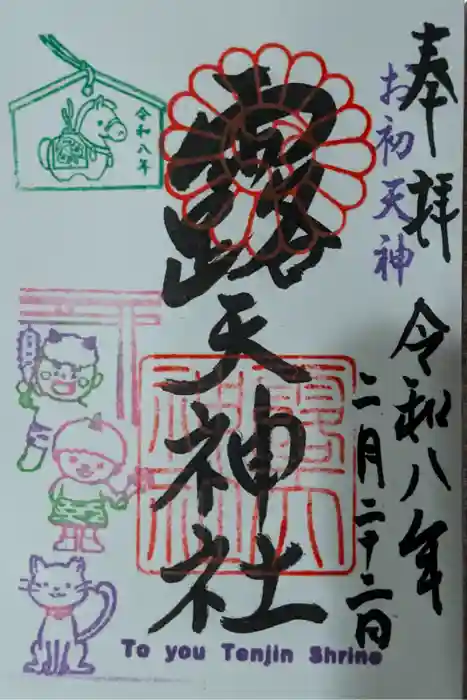 奉拝
お初天神
令和八年
二月二十二日
露天神社
露天
神社
令和八年
To you Tenjin Shrine